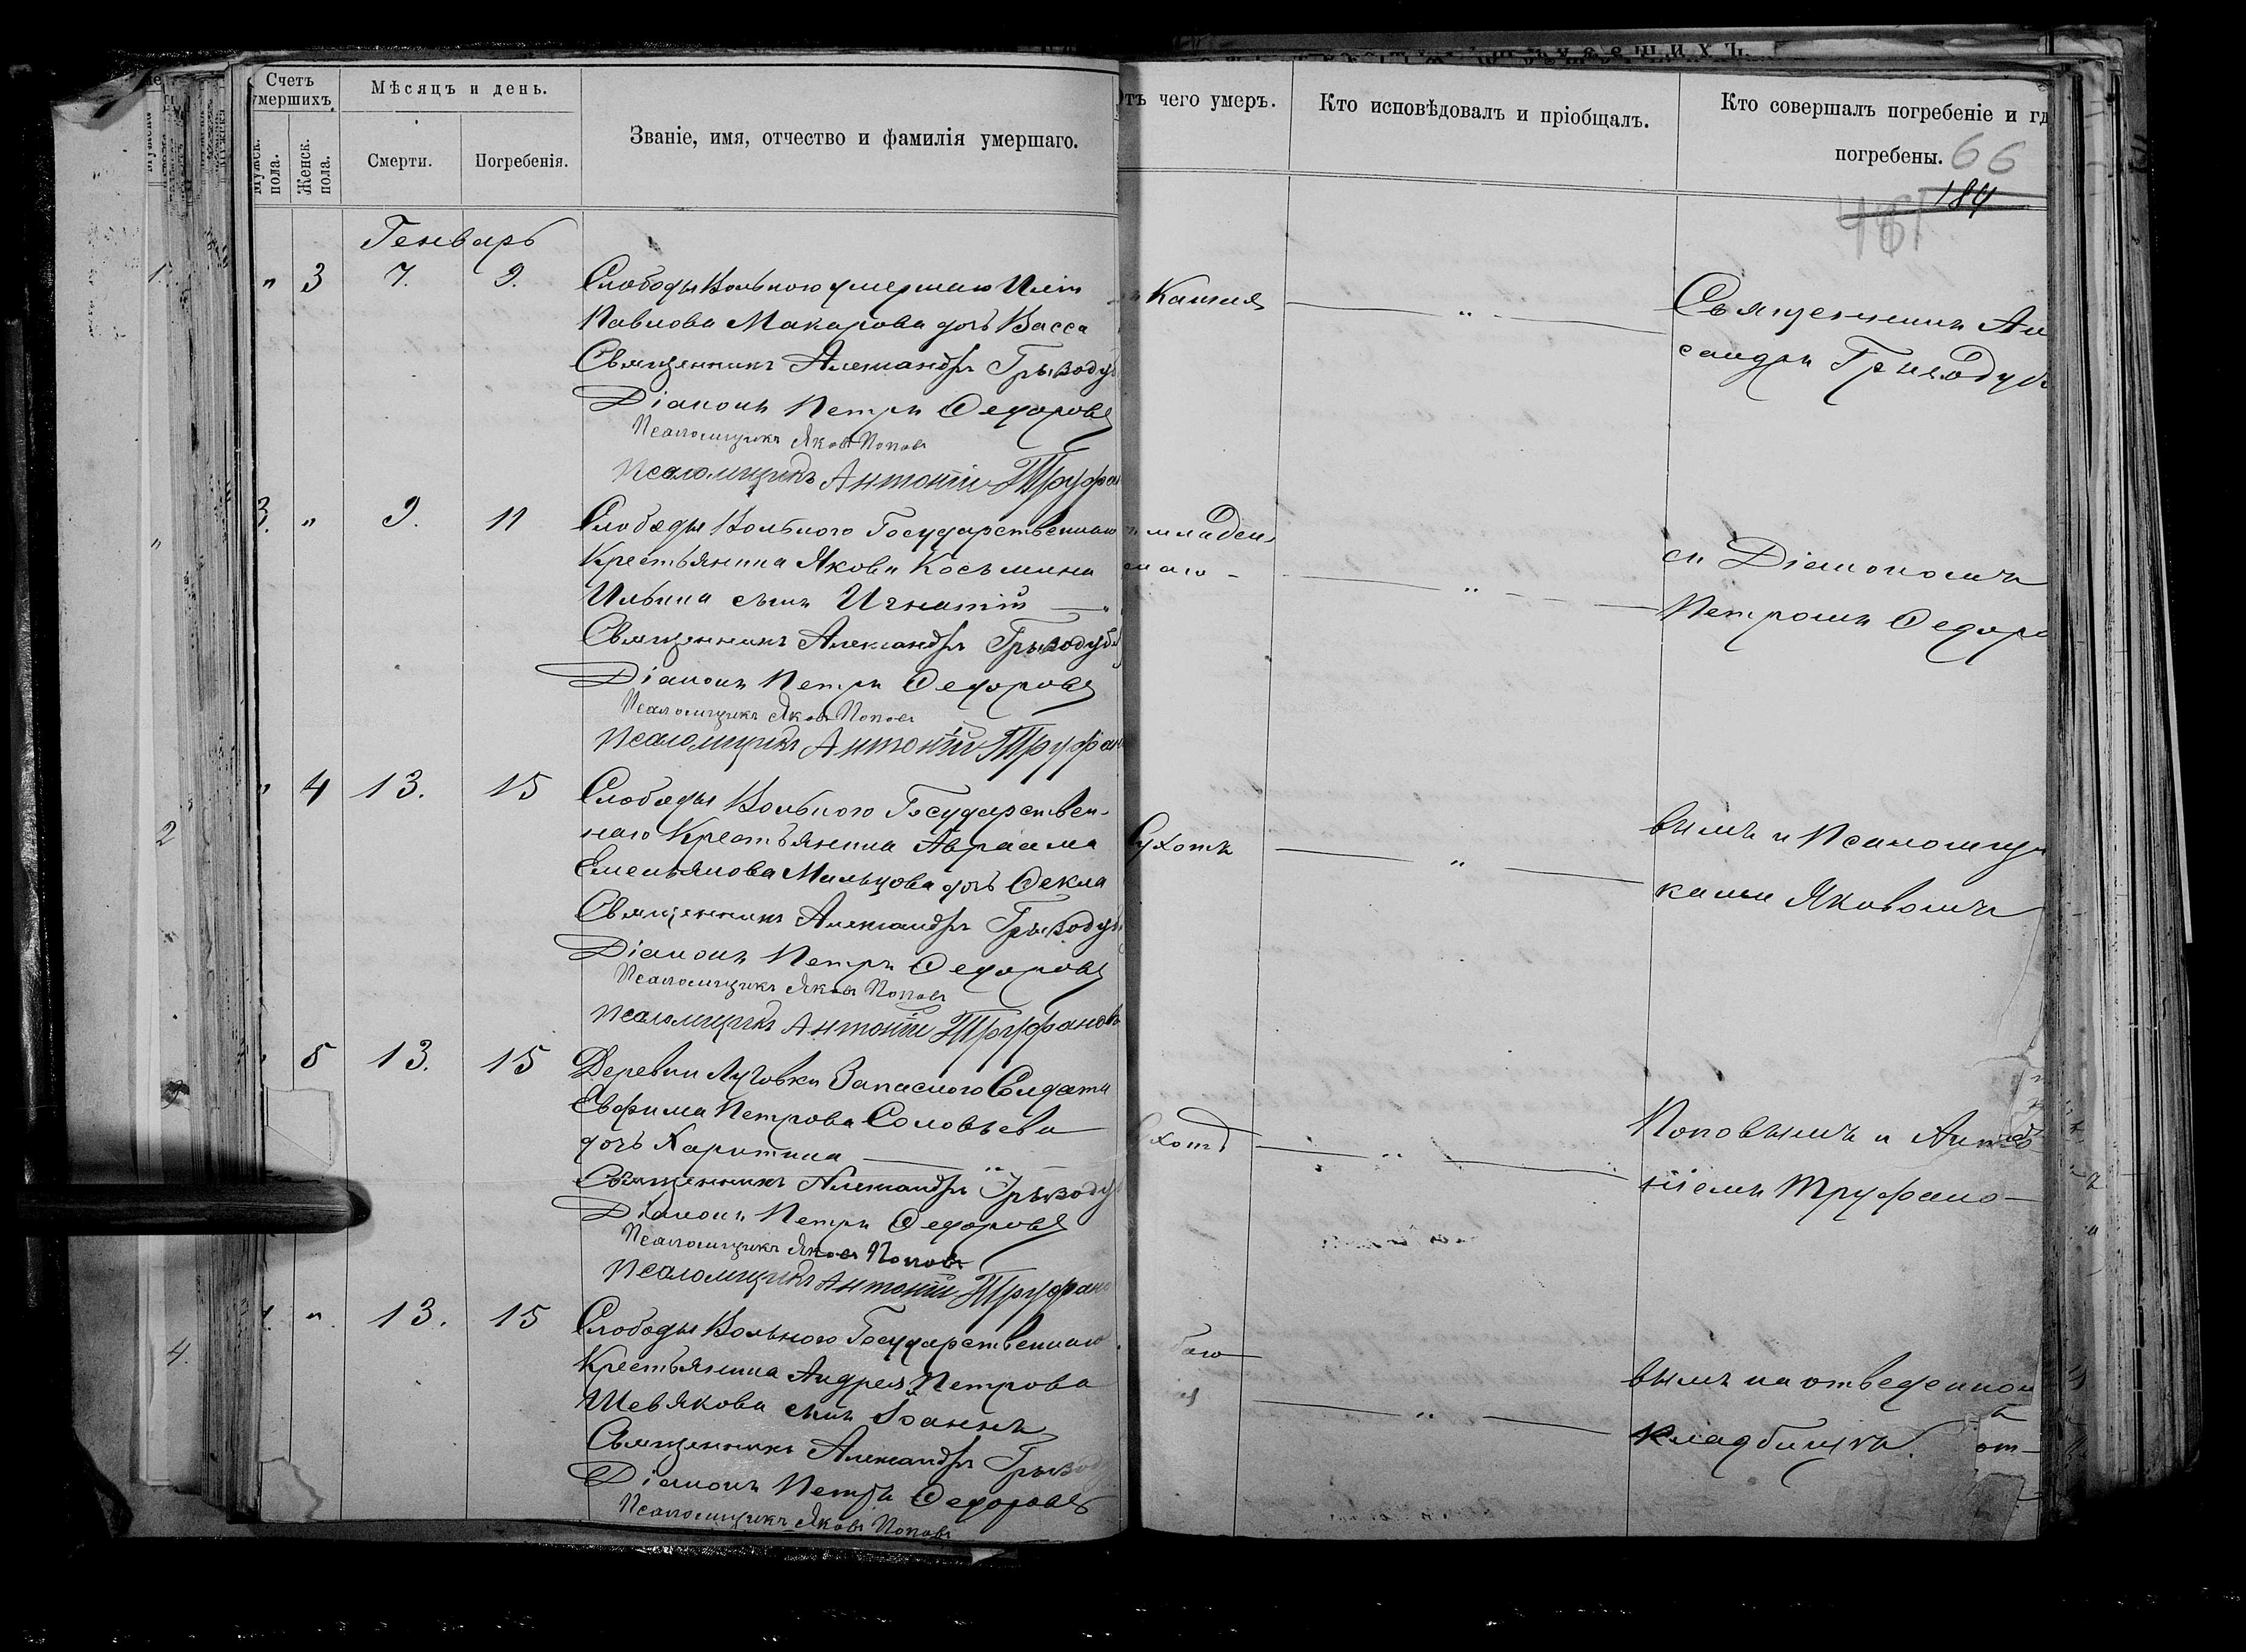 Счетъ умершихъ
Мужск. пола.
Женск. пола.
Мѣсяцъ и день.
Смерти.
Погребенія.
Званіе, имя, отчество и фамилія умершаго.
Отъ чего умеръ.
Кто исповѣдовалъ и пріобщалъ.
Кто совершалъ погребеніе и гд
погребены. 66
184
Генварь
" 3 7. 9. Слободы Вольного умершаго
Павлова Макарова дочь Васса
Священникъ Александръ
Діаконъ Петръ Ѳедоровъ
Псаломщикъ Яковъ Поповъ
Псаломщикъ Антоній Труфан
Кашля
"
Священникъ Ал
3. " 9. 11 Слободы Вольного Государственнаго
Крестьянина Якова Косьмина
Ильина сынъ Игнатій
Священникъ Александръ
Діаконъ Петръ Ѳедоровъ
Псаломщикъ Яковъ Поповъ
Псаломщикъ Антоній Труфан
младен
"
съ Діакономъ
Петромъ Ѳедоро
" 4 13. 15 Слободы Вольного Государствен-
наго Крестьянина Авраама
Емельянова Мальцова дочь Ѳекла
Священникъ Александръ
Діаконъ Петръ Ѳедоровъ
Псаломщикъ Яковъ Поповъ
Псаломщикъ Антоній Труфановъ
Сухотк
"
вымъ и Псаломщи
ками Яковомъ
5 13. 15 Деревни Луговки Запасного Солдата
Евфима Петрова Соловьева
дочь Харитина
Священникъ Александръ
Діаконъ Петръ Ѳедоровъ
Псаломщикъ Яковъ Поповъ
Псаломщикъ Антоній Труфано
"
Поповымъ и Анто-
ніемъ Труфано-
4. " 13. 15 Слободы Вольного Государственнаго
Крестьянина Андрея Петрова
Шевякова сынъ Іоаннъ
Священникъ Александръ
Діаконъ Петръ Ѳедоровъ
Псаломщикъ Яковъ Поповъ
"
вымъ на отведенном
кладбищѣ.